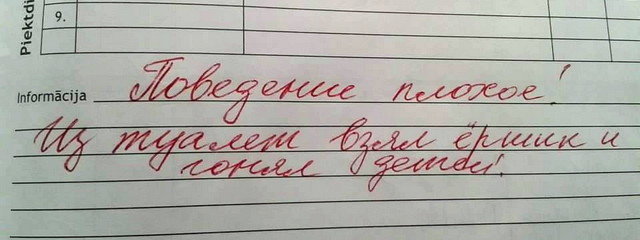 Piektdi
9.
Informācija Поведение плохое!
Из туалет взял ёршик и
гонял детей!